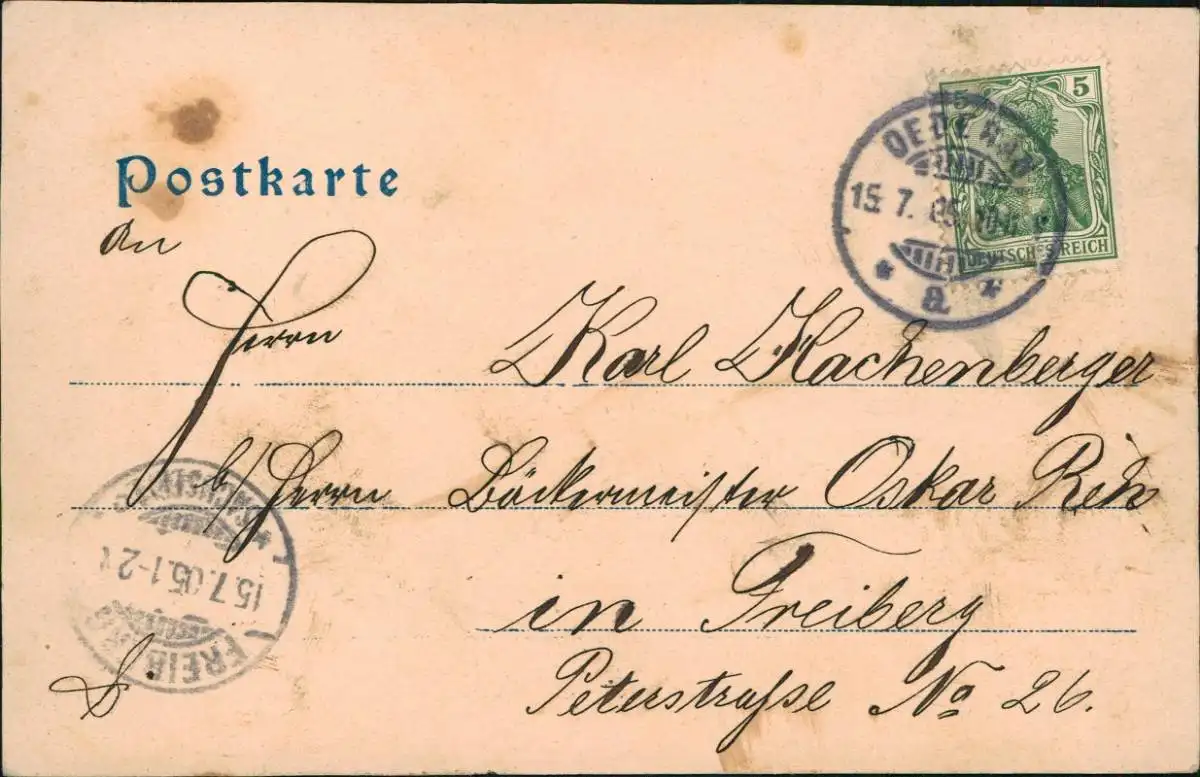 Postkarte
5 5
DEUTSCHES REICH
OEDERAN
15. 7. 05.
a
An
Herrn Karl Hachenberger
b/Herrn Bäckermeister Oskar
in Freiberg
Peterstraſse No 26.
FREIBERG
15.7.05.1-2